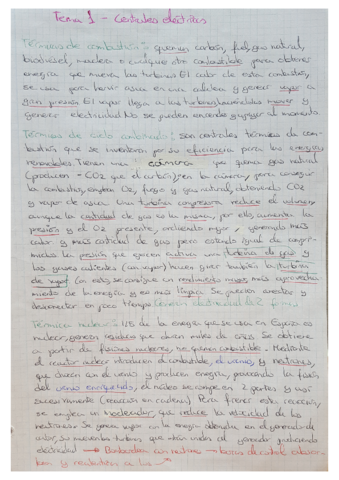 Tema 1 - Centrales eléctricas
Térmicas de combustión: queman carbón, fuel, gas natural,
biodiésel, madera o cualquier otro combustible para obtener
energía que mueva las turbinas. El calor de esta combustión,
se usa para hervir agua en una caldera y generar vapor a
gran presión. El vapor llega a las turbinas haciéndolas mover y
generar electricidad. No se pueden encender y apagar al momento
Térmicas de ciclo combinado: Son centrales térmicas de com-
bustión que se inventaron por su eficiencia para las energías
renovables. Tienen una cámara que quema gas natural
(producen - CO2 que el carbón) en la cámara, para conseguir
la combustión, emplea O2, fuego y gas natural, obteniendo CO2
y vapor de agua. Una turbina compresora reduce el volumen,
aunque la cantidad de gas es la misma, por ello, aumenta la
presión y el O2 presente, ardiendo mejor, generando más
calor y más cantidad de gas pero estando igual de compri-
mido. La presión que ejercen activa una turbina de gas y
los gases calientes (con vapor) hacen girar también la turbina
de vapor (a esto) se consigue un rendimiento mayor más aprovecha-
miento de la energía y es más limpia. Se pueden encender y
desconectar en poco tiempo. Generan electricidad de 2 formas.
Térmica nuclear: 1/5 de la energía que se usa en España es
nuclear, generan residuos que duran miles de años. Se obtiene
a partir de fisiones nucleares, no queman combustible. Mediante
el reactor nuclear introducen el combustible, el uranio, y neutrones
que chocan con el uranio y producen energía, provocando la fisión
del uranio enriquecido, el núcleo se rompe en 2 partes y así
sucesivamente (reacción en cadena). Para frenar esta reacción,
se emplea un moderador, que reduce la velocidad de los
neutrones. Se genera vapor con la energía obtenida en el generador de
calor, se mueven las turbinas que están unidas al generador produciendo
electricidad → Bombardean con neutrones → barras de control absor-
ben y neutralizan a los